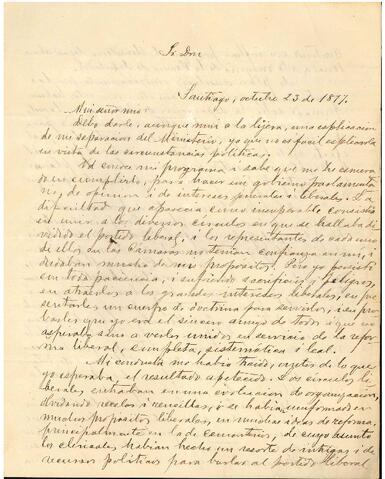 Sr. Don
Santiago, octubre 23 de 1877.
Mui señor mio
Debo darle, aunque mui a la lijera, una esplicacion
de mi separacion del Ministerio, ya que no es facil esplicarla
en vista de las circunstancias políticas.
Ud conoce mi programa i sabe que me he esmera
do en cumplirlo, para hacer un gobierno parlamenta
rio, de opinion i de intereses jenerales i liberales. La
dificultad que aparecia como insuperable consistia
en unir a los diversos circulos en que se hallaba di
vidido el partido liberal, i los representantes de cada uno
de ellos en las Cámaras no tenian confianza en mi, i
dudaban mucho de mi propósito. Pero yo persistí
con toda paciencia, i sufriendo sacrificios i
en atraerlos a los grandes intereses liberales, en pre
sentarles un cuerpo de doctrina para servirlos, i en pro
barles que yo era el sincero amigo de todos i que no
esperaba sino a verlos unidos en servicio de la refor
ma liberal, completa, sistemática i leal.
Mi conducta me habia traido, antes de lo que
yo esperaba, el resultado apetecido. Los circulos li
berales entraban en una evolucion de organizacion,
i se habia uniformado en
muchos propósitos liberales, en muchas ideas de reforma,
principalmente en la de cementerios, de cuyo asunto
los clericales habian hecho un resorte de intrigas i de
recursos políticos para burlar al partido liberal